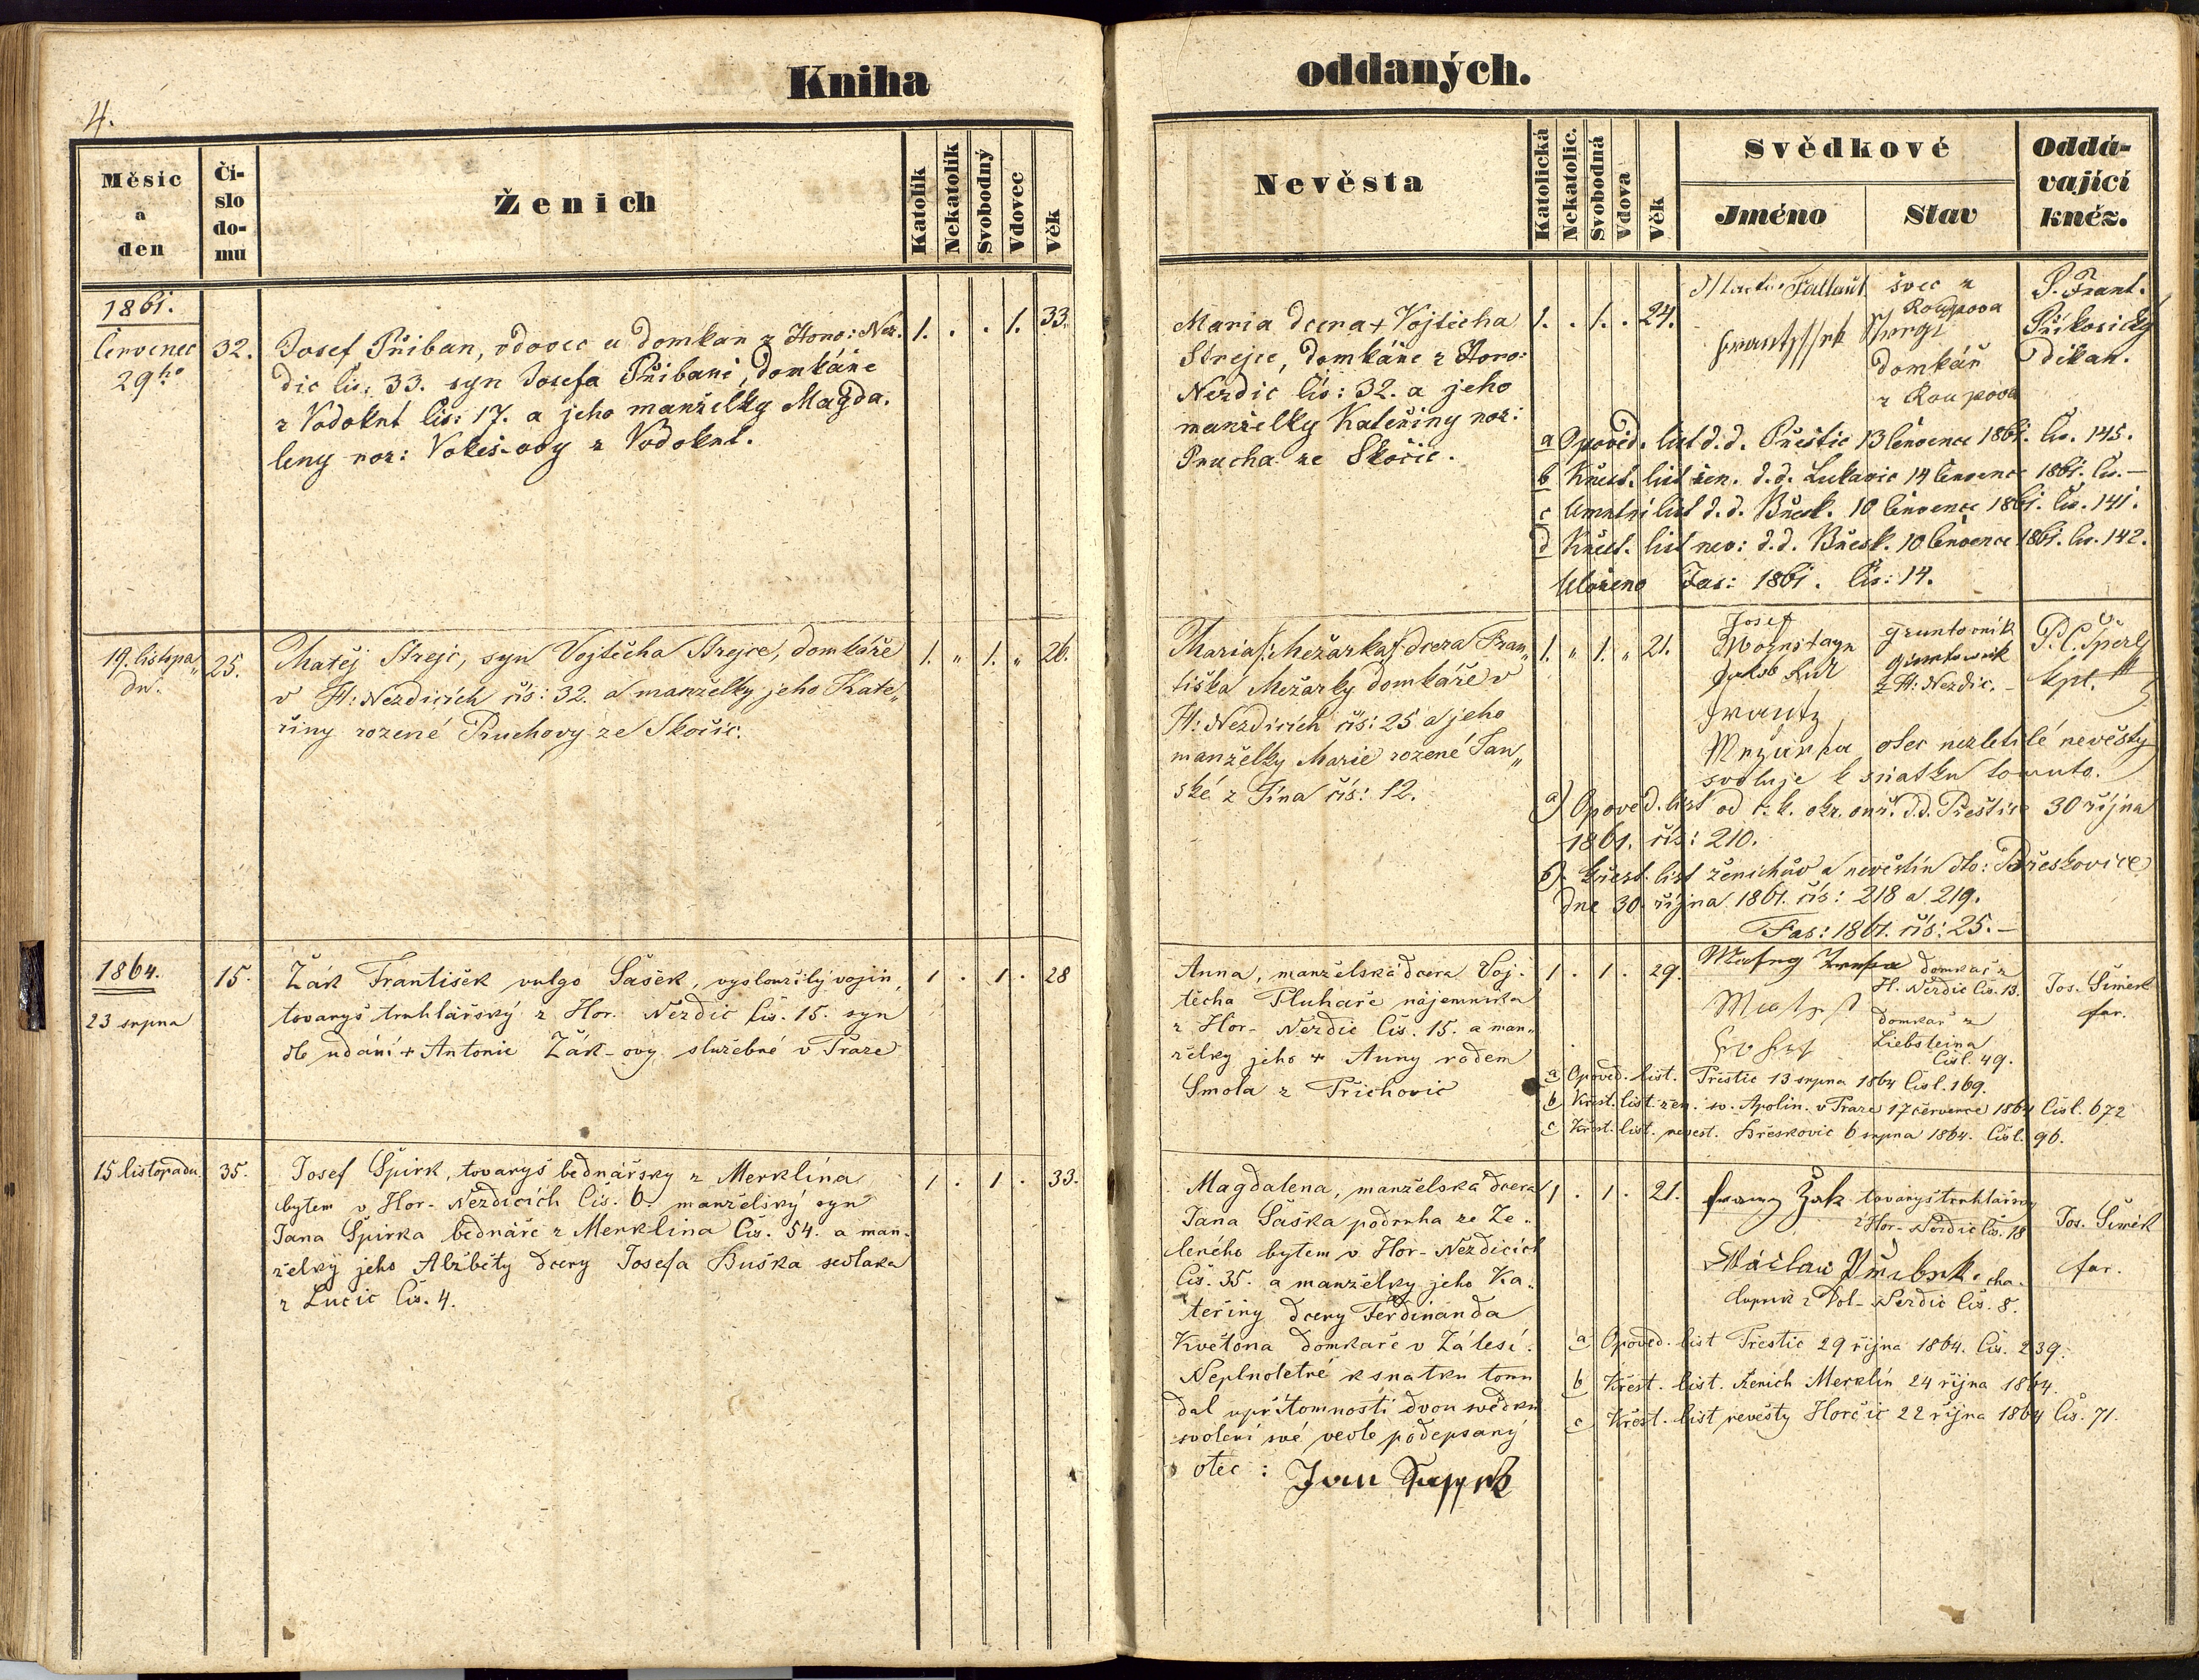 4.
Kniha
oddaných.
Měsíc a den
Číslo domu
Ženich
Katolík
Nekatolík
Svobodný
Vdovec
Věk
Nevěsta
Katolická
Nekatolic.
Svobodná
Vdova
Věk
Svědkové
Jméno
Stav
Oddávající kněz.
1861.
červenec
29ho
32.
Josef Přiban, vdovec a domkan z Horo: Nez.
dic čís: 33. syn Josefa Přibaně, domkáře
z Vodoknt čís: 17. a jeho manželky Magda.
leny roz: Vokes-ovy z Vodoknt.
1. . . 1. 33.
Maria dcera + Vojtěcha
Strejce, domkáře z Horo:
Nezdic čís: 32. a jeho
manželky Kateřiny roz:
Prucha ze Skočic.
1. . 1. . 24.
švec z
Roupova
domkář
z Roupova
P. Frant.
Příkosický
děkan.
a Opověd. list d. d. Přestic 13 července 1861. čís. 145.
b Křest. list žen. d. d. Lukavic 14 července 1861. čís. —
c Úmrtní list d. d. Břesk. 10 července 1861. čís. 141.
d Křest. list nev: d. d. Břesk. 10 července 1861. čís. 142.
Uloženo Fas: 1861. Čís: 14.
19. listopa„
du.
25.
Matěj Strejc, syn Vojtěcha Strejce, domkáře
v H: Nezdicích čís: 32. a manželky jeho Kate„
řiny rozené Pruchovy ze Skočic.
1. „ 1. „ 26.
Maria /: Mežarka :/ dcera Fran„
tiška Mežarky domkáře v
H: Nezdicích čís: 25 a jeho
manželky Marie rozené Jan„
ské z Týna čís: 12.
1. „ 1. „ 21.
Josef
gruntovník
gruntovník
z H: Nezdic. –
P. C. Šperl
kpl.
Frantz
Mežarka, otec nezletilé nevěsty
svoluje k sňatku tomuto.
a) Opověd. list od c. k. okr. ouř. d. d. Přeštice 30 října
1861. čís: 210.
b) Křest. list ženichův a nevěstin dto: Břeskovice
dne 30. října 1861. čís: 218 a 219.
Fas: 1861. čís: 25. –
1864.
23 srpna
15.
Žák František vulgo Šašek, vysloužilý vojín,
tovaryš truhlářský z Hor. Nezdic čís. 15. syn
dle udání + Antonie Žák-ovy služebné v Praze
1 . 1 . 28
Anna, manželská dcera Voj-
těcha Pluhaře nájemníka
z Hor- Nezdic čís. 15. a man-
želky jeho + Anny rodem
Smola z Příchovic
1 . 1 . 29.
domkář z
H. Nezdic čís. 13.
domkář z
Liebšteina
čísl. 49.
Jos. Šimek
far.
a Opověd. list. Přestic 13 srpna 1864 čísl. 169.
b Křest. list. žen. sv. Apolin. v Praze 17 července 1864 čísl. 672
c Křest. list. nevěst. Břeskovic 6 srpna 1864. čísl. 96.
15 listopadu
35.
Josef Špirk, tovaryš bednářský z Merklína
bytem v Hor- Nezdicích čís. 6. manželský syn
Jana Špirka bednáře z Merklína čís. 54. a man-
želky jeho Alžběty dcery Josefa Huška sedláka
z Lučic čís. 4.
1 . 1 . 33.
Magdalena, manželská dcera
Jana Šaška podruha ze Ze-
leného bytem v Hor- Nezdicích
čís. 35. a manželky jeho Ka-
teřiny dcery Ferdinanda
Květona domkáře v Zálesí.
Neplnoleté k sňatku tomu
dal v přítomnosti dvou svědků
svolení své vedle podepsaný
otec :
1 . 1 . 21.
Franz Žak tovaryš truhlářský
z Hor- Nezdic čís. 18
Wáclaw cha-
lupník z Dol- Nezdic čís. 8.
Jos. Šimek
far.
a Opověd. list Přestic 29 října 1864. čís. 239.
b Křest. list. ženich Merklín 24 října 1864.
c Křest. list nevěsty Horčic 22 října 1864 čís. 71.